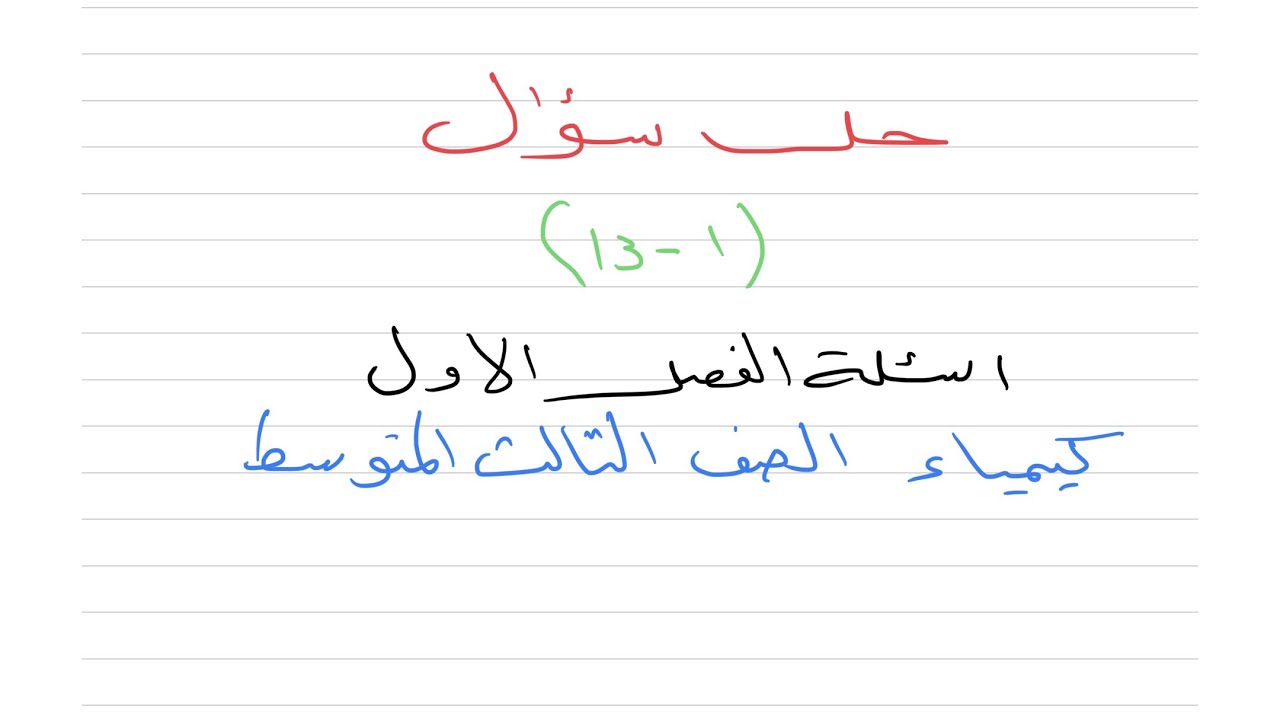 حل سؤال
(13-1)
اسئلة الفصل الاول
كيمياء الصف الثالث المتوسط